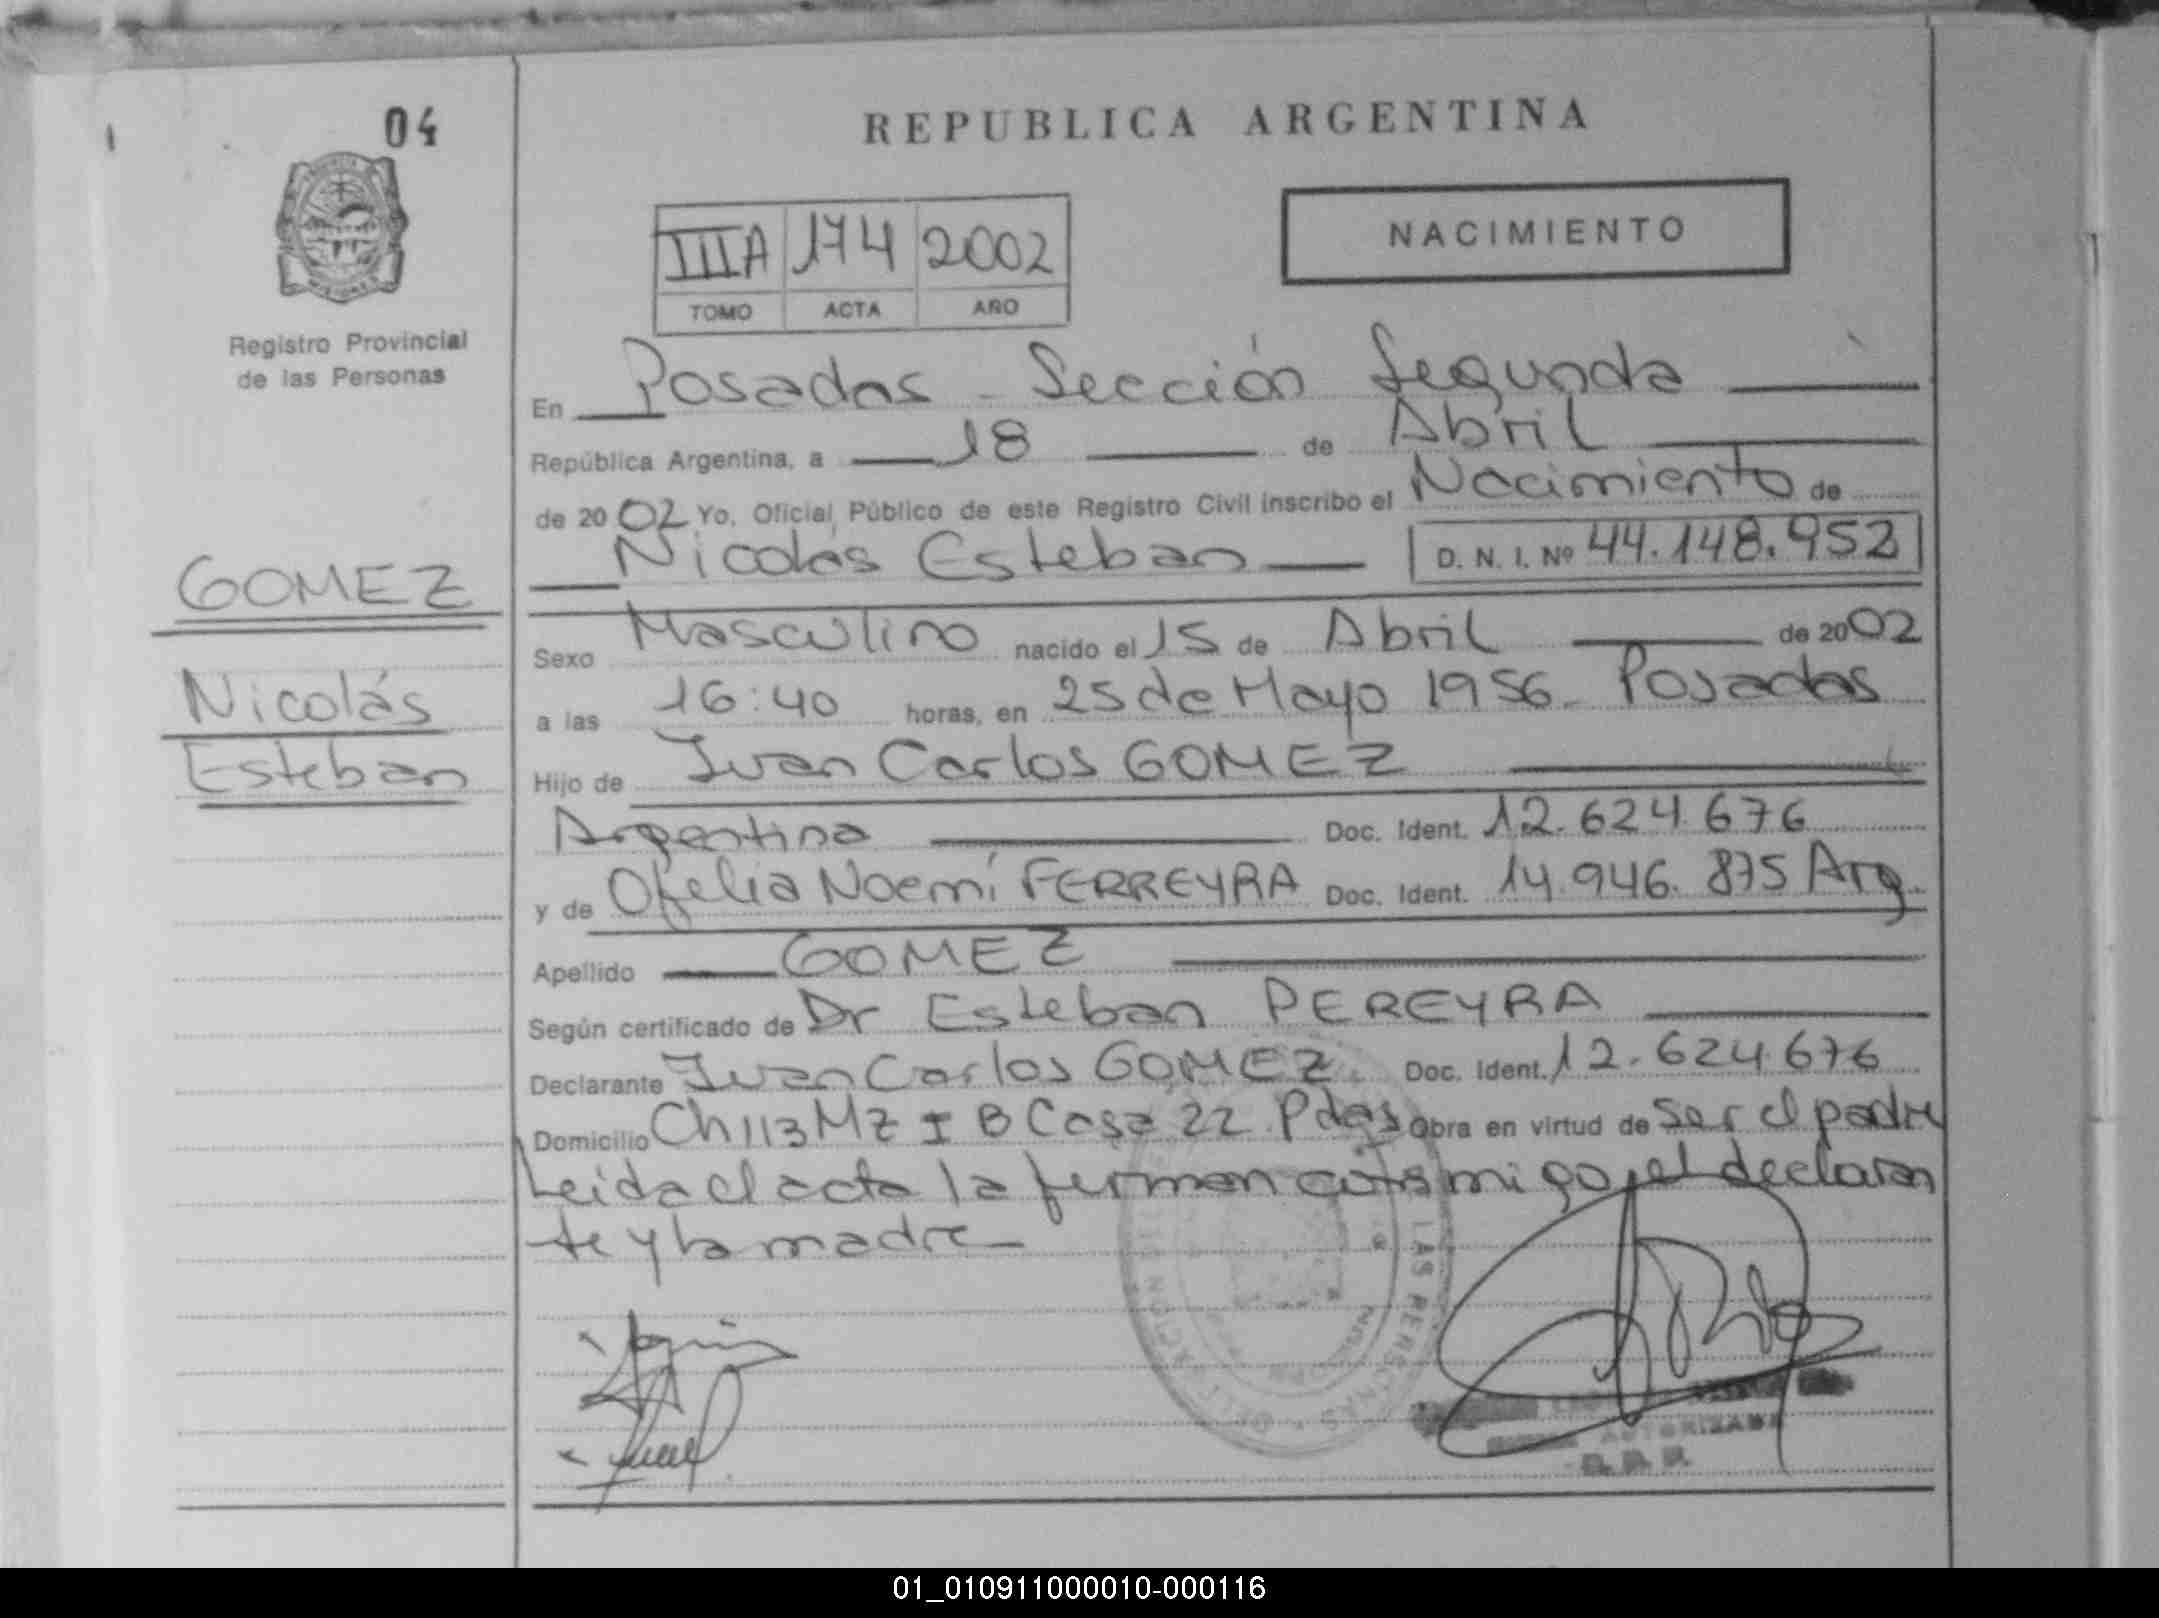 04
REPUBLICA ARGENTINA
IIIA 174 2002
TOMO ACTA AÑO
NACIMIENTO
Registro Provincial
de las Personas
En Posadas - Sección Segunda
República Argentina, a 18 de Abril
de 2002 Yo, Oficial Público de este Registro Civil inscribo el Nacimiento de
Nicolás Esteban D. N. I. Nº 44.148.952
GOMEZ
Nicolás
Esteban
Sexo Masculino nacido el 15 de Abril de 2002
a las 16:40 horas, en 25 de Mayo 1956 - Posadas
Hijo de Juan Carlos GOMEZ
Argentina Doc. Ident. 12.624.676
y de Ofelia Noemí FERREYRA Doc. Ident. 14.946.875 Arg.
Apellido GOMEZ
Según certificado de Dr Esteban PEREYRA
Declarante Juan Carlos GOMEZ Doc. Ident. 12.624.676
Domicilio Ch 113 Mz I B Casa 22 Pdas Obra en virtud de ser el padre
Leida el acta la firman conmigo, el declaran
te y la madre
LAS PERSONAS
AUTORIZADA
01_010911000010-000116